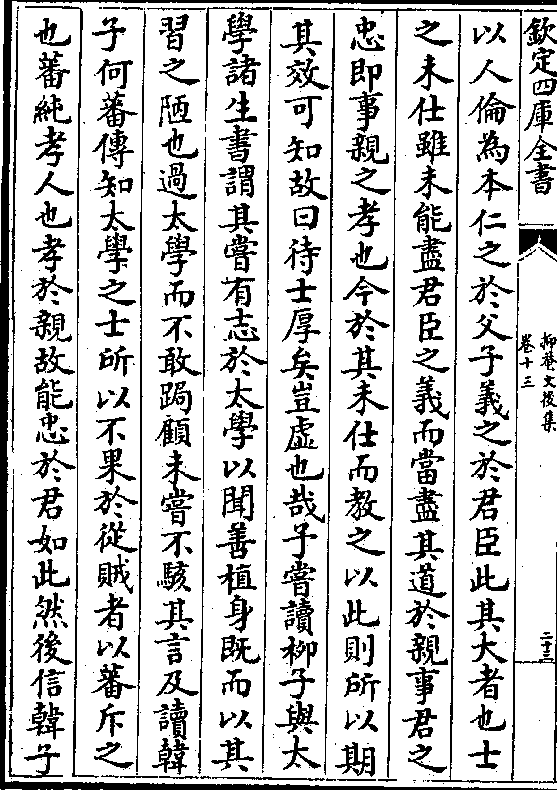 欽定四庫全書
抑菴文後集
卷十三
二十三
以人倫為本仁之於父子義之於君臣此其大者也士
之未仕雖未能盡君臣之義而當盡其道於親事君之
忠即事親之孝也今於其未仕而教之以此則所以期
其效可知故曰待士厚矣豈虛也哉子嘗讀柳子與太
學諸生書謂其嘗有志於太學以聞善植身既而以其
習之陋也過太學而不敢跼顧未嘗不駭其言及讀韓
子何蕃傳知太學之士所以不果於從賊者以蕃斥之
也蕃純孝人也孝於親故能忠於君如此然後信韓子